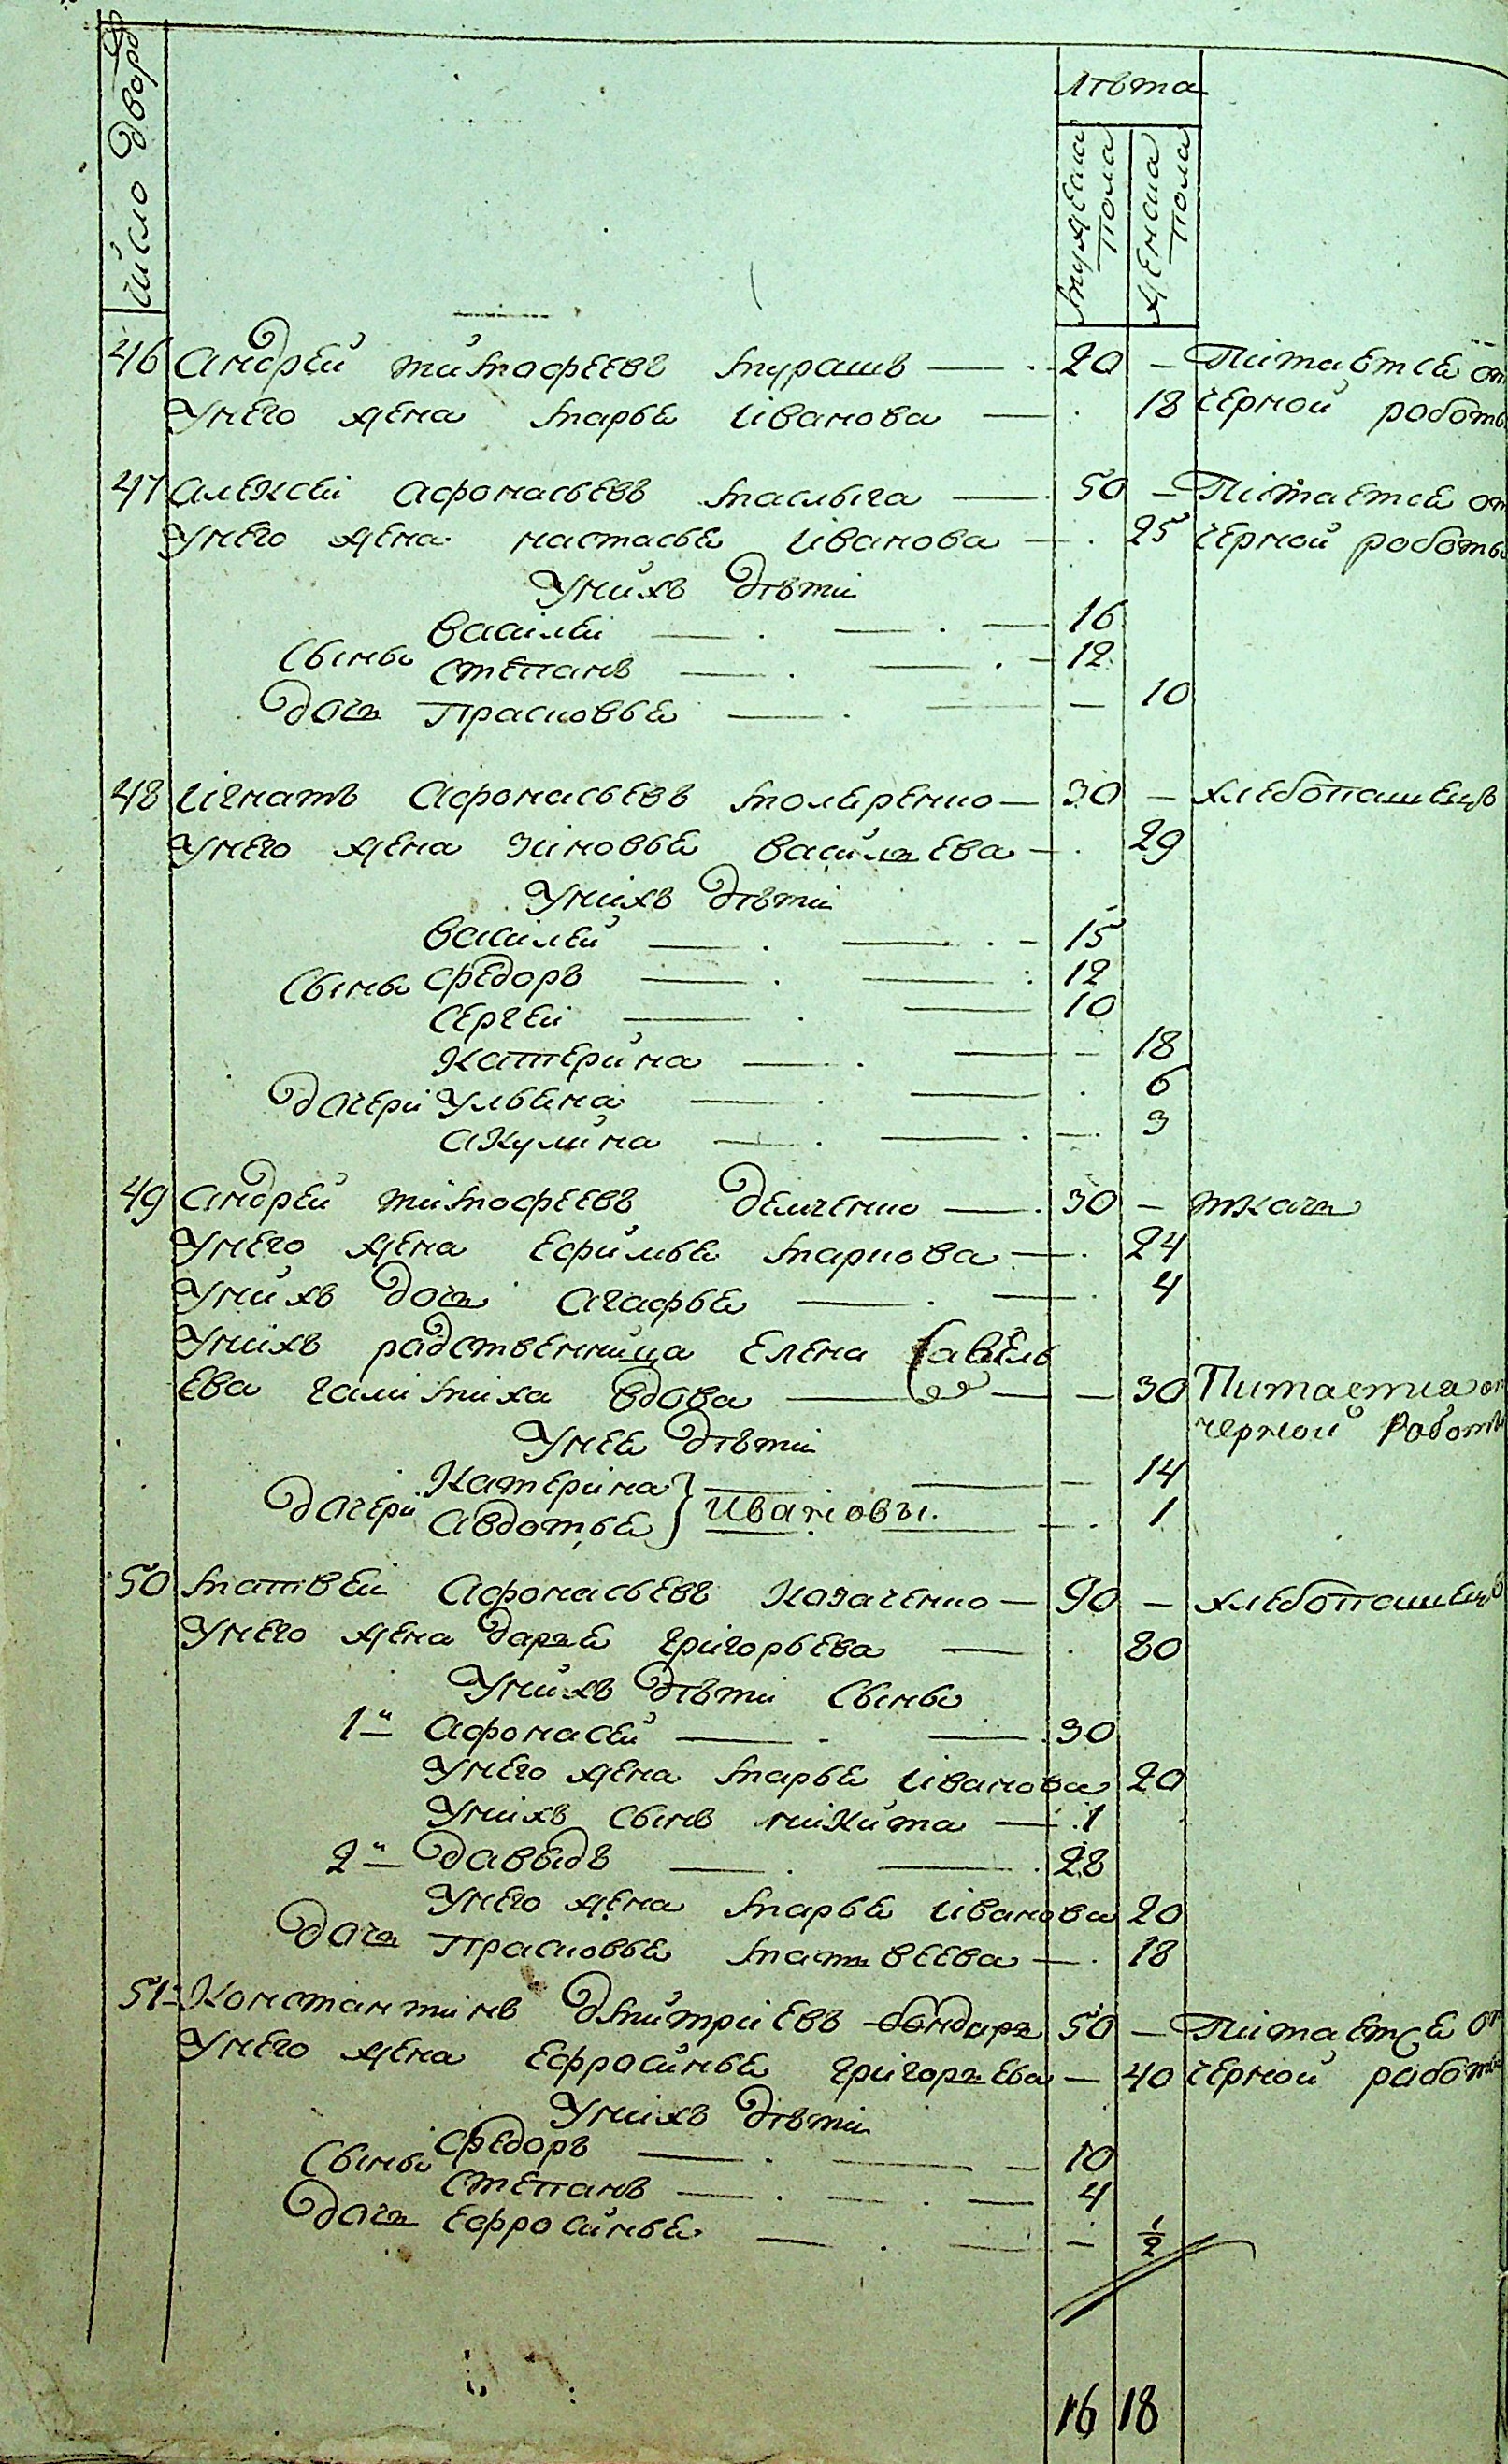 Число дворо
Лѣта
мужеска пола
женска пола
46 Андрей тимофеевъ мурашъ — 20 — Пітаетсе от
Унего жена марья івановa — 18 черной роботы
47 алексеі афонасьевъ — 50 — Пітаетсе от
Унего жена настасье івановa — 25 черной роботы
Унихъ дѣти
василеі — 16
Сыны степанъ — 12
дочь прасковье — 10
48 ігнатъ афонасьевъ — 30 — хлебопашецъ
Унего жена зіновье васильева — 29
Уніхъ дѣти
василей — 15
Сыны федоръ — 12
сергеі — 10
катерина — 18
дочери ульена — 6
акулина — 3
49 андрей тимофеевъ демченко — 30 — ткачь
Унего жена ефимье маркова — 24
Унихъ дочь агафье — 4
Уніхъ радственница елена Савель
ева вдова — 30 Питаетца от
черной Работы
Унее дѣти
Катеріна — 14
дочери авдотье } Ивановы. — 1
50 матвей афонасьевъ козаченко — 90 — хлебопашецъ
Унего жена дарье грігорьева — 80
Унихъ дѣти Сыны
1й афонасей — 30
Унего жена марье івановa 20
Уніхъ сынъ никита — 1
2й давыдъ — 28
Унего жена марье івановa 20
дочь прасковье матвеева — 18
51 Константінъ дмитріевъ бондарь 50 — Пітаетсе от
Унего жена ефросинье грігорьева — 40 черной работы
Уніхъ дѣти
федоръ — 10
Сыны степанъ — 4
дочь ефросинье — 1/2
16 18